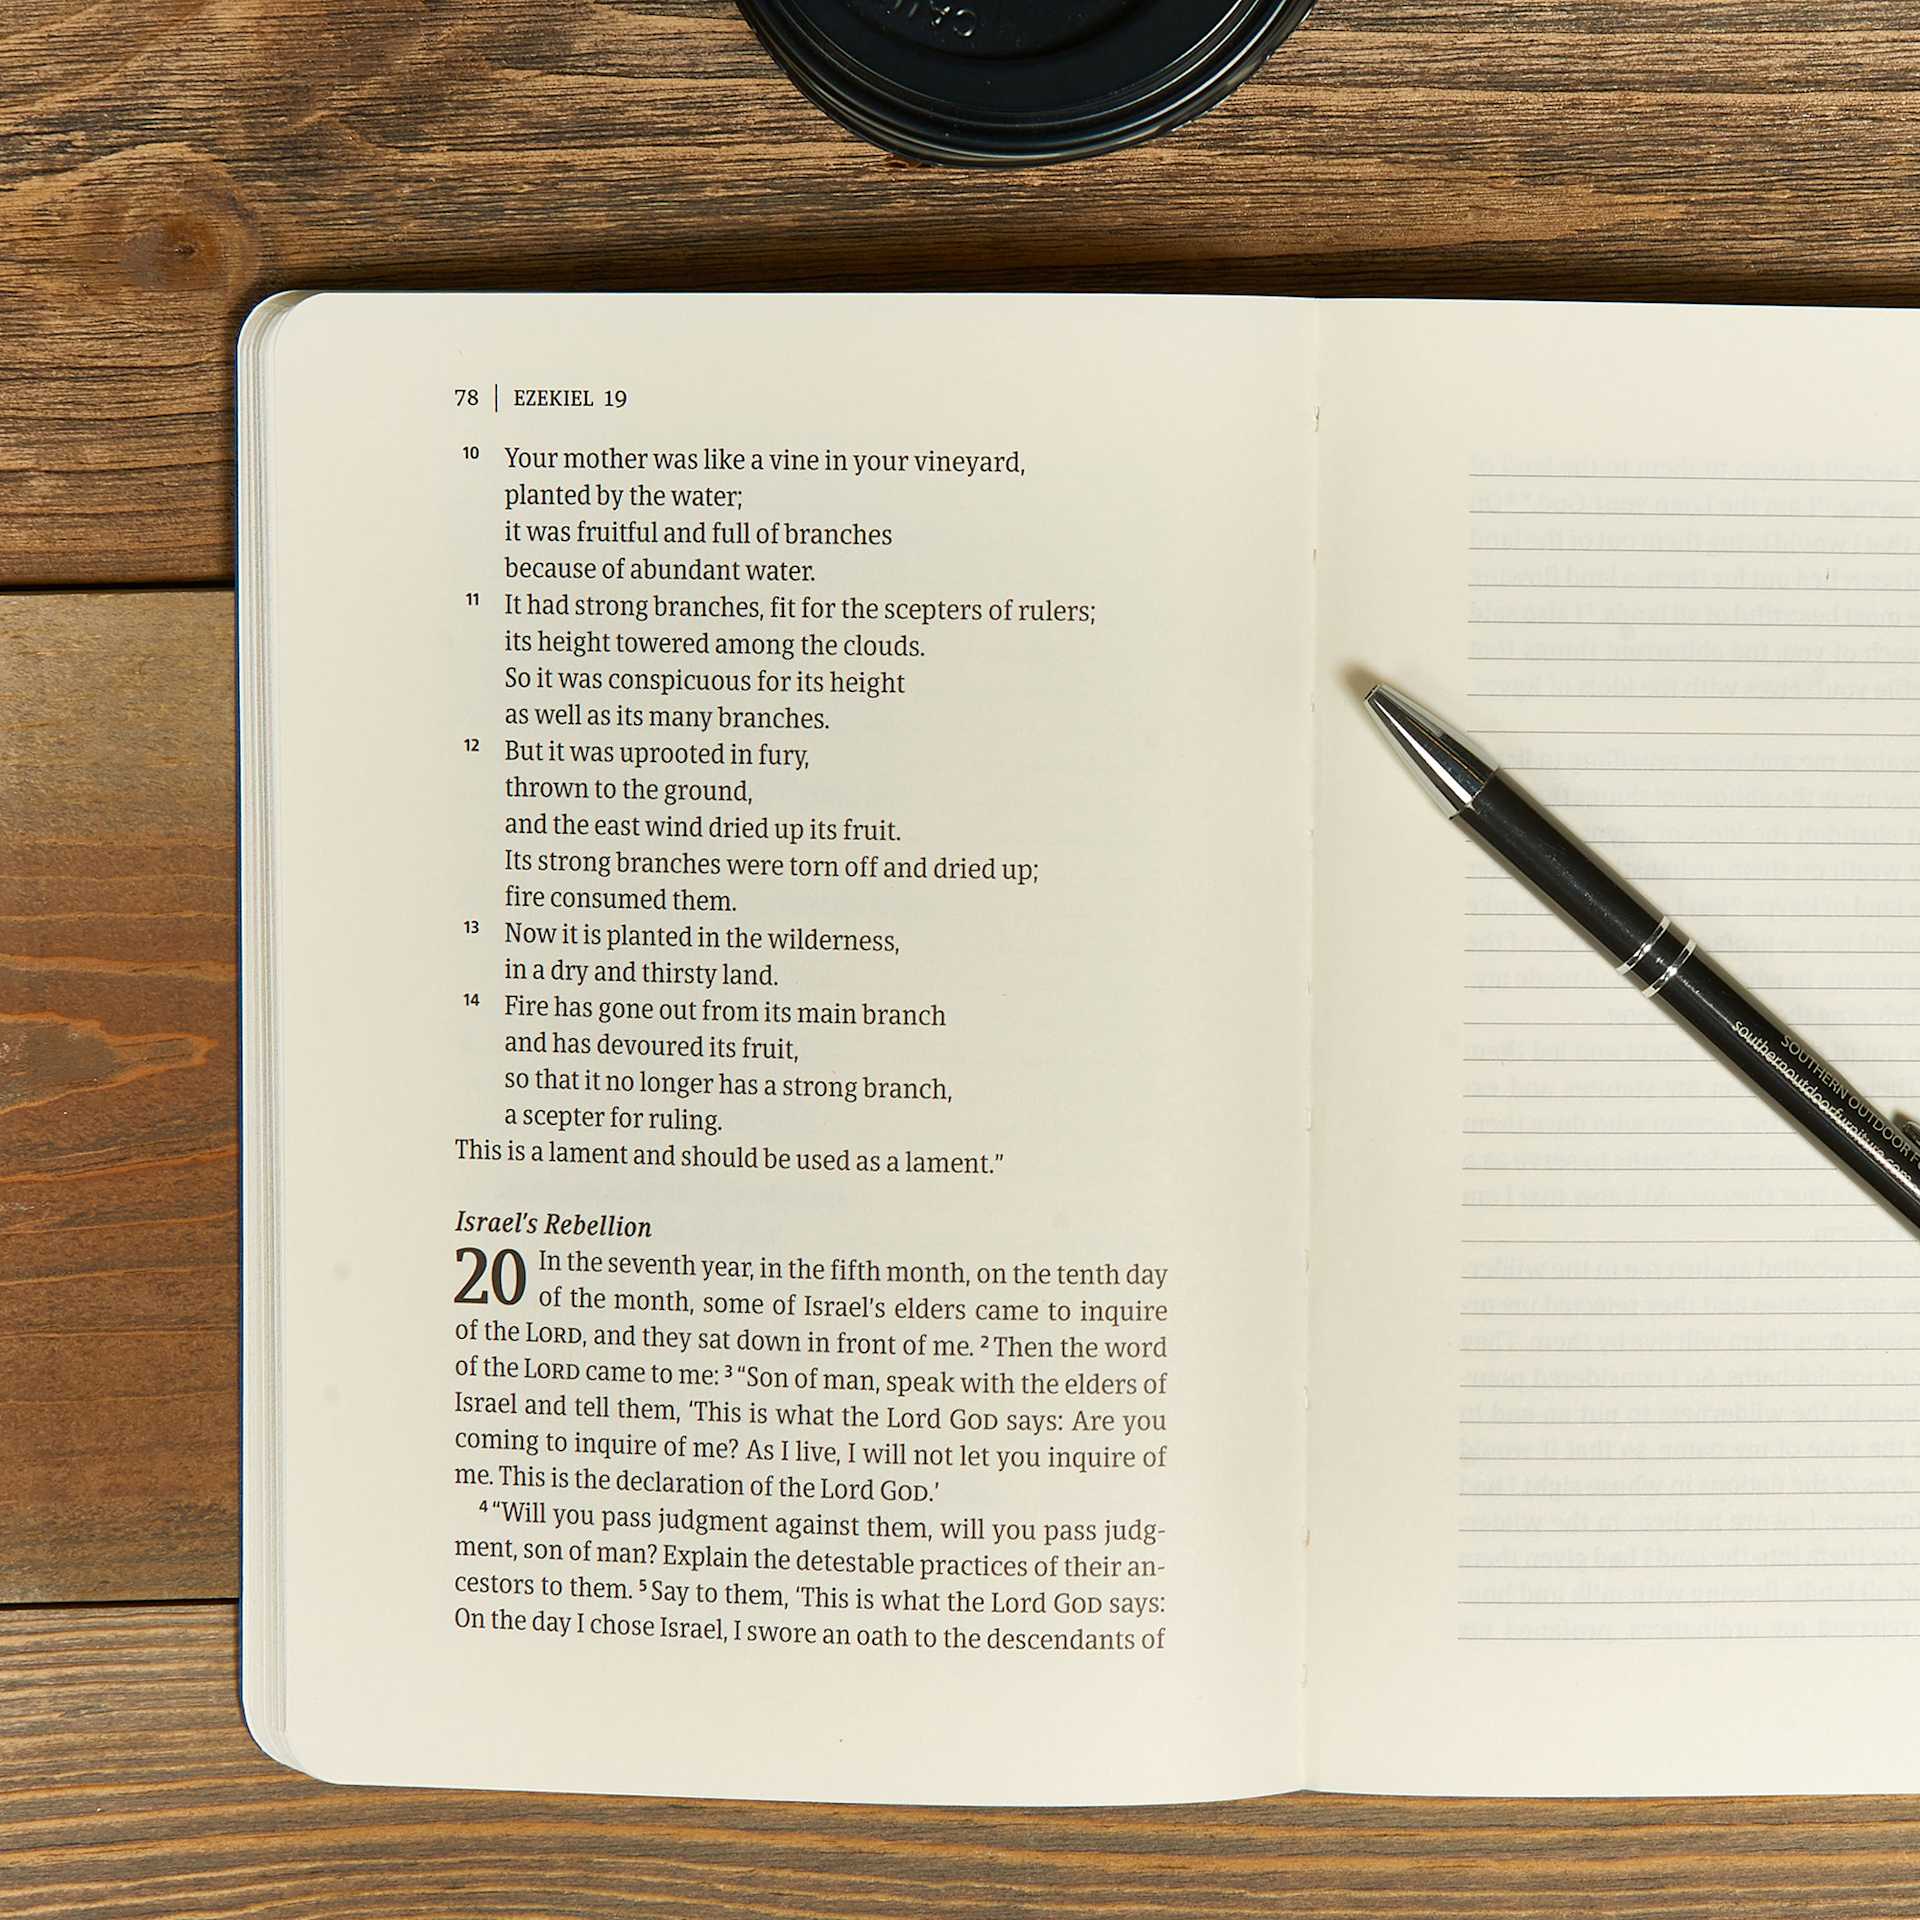 CAU
78 | EZEKIEL 19
10 Your mother was like a vine in your vineyard,
planted by the water;
it was fruitful and full of branches
because of abundant water.
11 It had strong branches, fit for the scepters of rulers;
its height towered among the clouds.
So it was conspicuous for its height
as well as its many branches.
12 But it was uprooted in fury,
thrown to the ground,
and the east wind dried up its fruit.
Its strong branches were torn off and dried up;
fire consumed them.
13 Now it is planted in the wilderness,
in a dry and thirsty land.
14 Fire has gone out from its main branch
and has devoured its fruit,
so that it no longer has a strong branch,
a scepter for ruling.
This is a lament and should be used as a lament.”
Israel’s Rebellion
20 In the seventh year, in the fifth month, on the tenth day
of the month, some of Israel’s elders came to inquire
of the LORD, and they sat down in front of me. 2 Then the word
of the LORD came to me: 3 “Son of man, speak with the elders of
Israel and tell them, ‘This is what the Lord GOD says: Are you
coming to inquire of me? As I live, I will not let you inquire of
me. This is the declaration of the Lord GOD.’
4 “Will you pass judgment against them, will you pass judg-
ment, son of man? Explain the detestable practices of their an-
cestors to them. 5 Say to them, ‘This is what the Lord GOD says:
On the day I chose Israel, I swore an oath to the descendants of
SOUTHERN OUTDOOR F
southernoutdoorfurniture.com